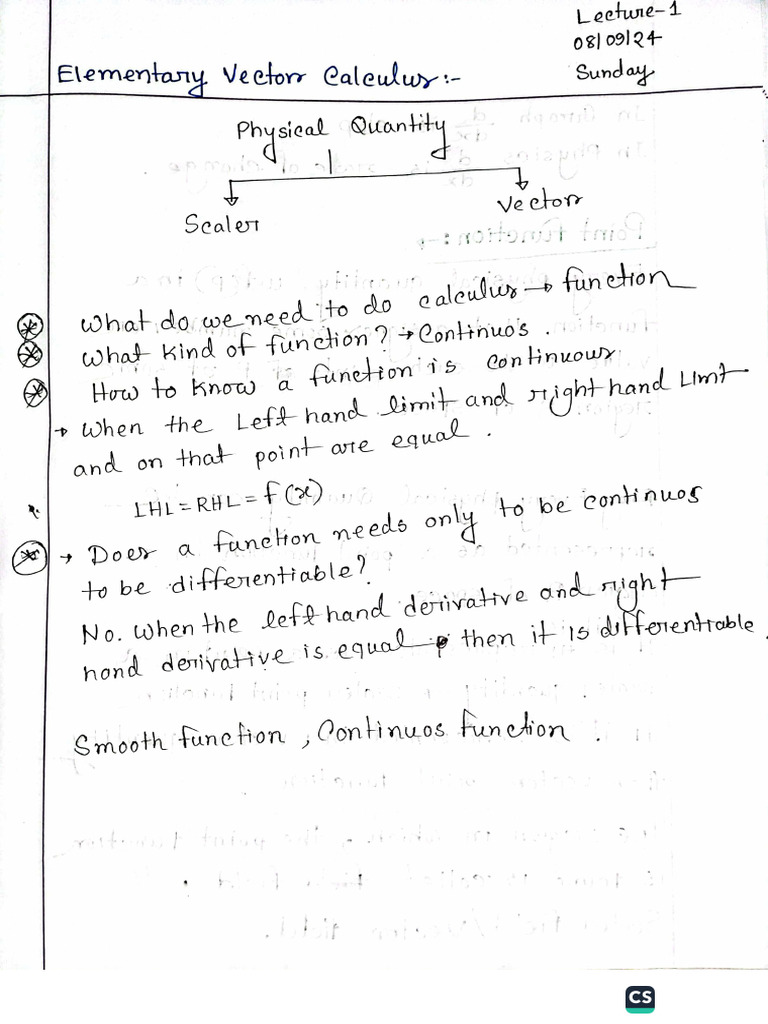 Lecture-1
08/09/24
Sunday
Elementary Vector Calculus:-
Physical Quantity
Scaler
Vector
What do we need to do calculus → function
What kind of function? → Continuos.
How to know a function is continuous
→ When the Left hand limit and right hand Limt
and on that point are equal.
LHL = RHL = f(x)
→ Does a function needs only to be continuos
to be differentiable?
No. When the left hand derivative and right
hand derivative is equal then it is differentiable.
Smooth function, Continuos function.
CS